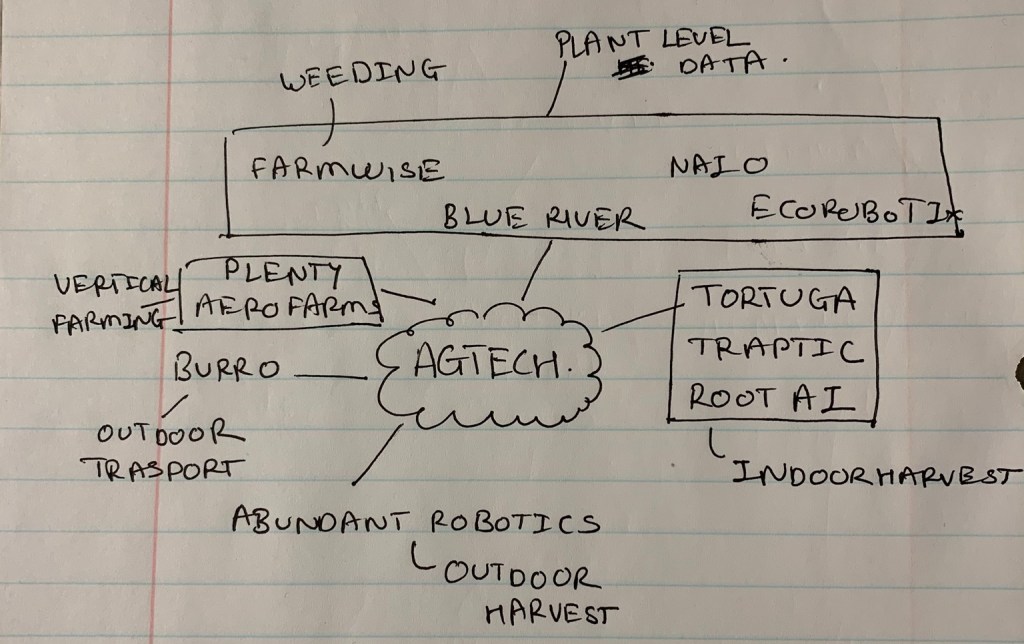 PLANT LEVEL
DATA.
WEEDING
FARMWISE
NAIO
BLUE RIVER
ECOROBOTIX
VERTICAL
FARMING
PLENTY
AEROFARMS
TORTUGA
TRAPTIC
ROOT AI
AGTECH.
BURRO
OUTDOOR
TRASPORT
INDOOR HARVEST
ABUNDANT ROBOTICS
OUTDOOR
HARVEST